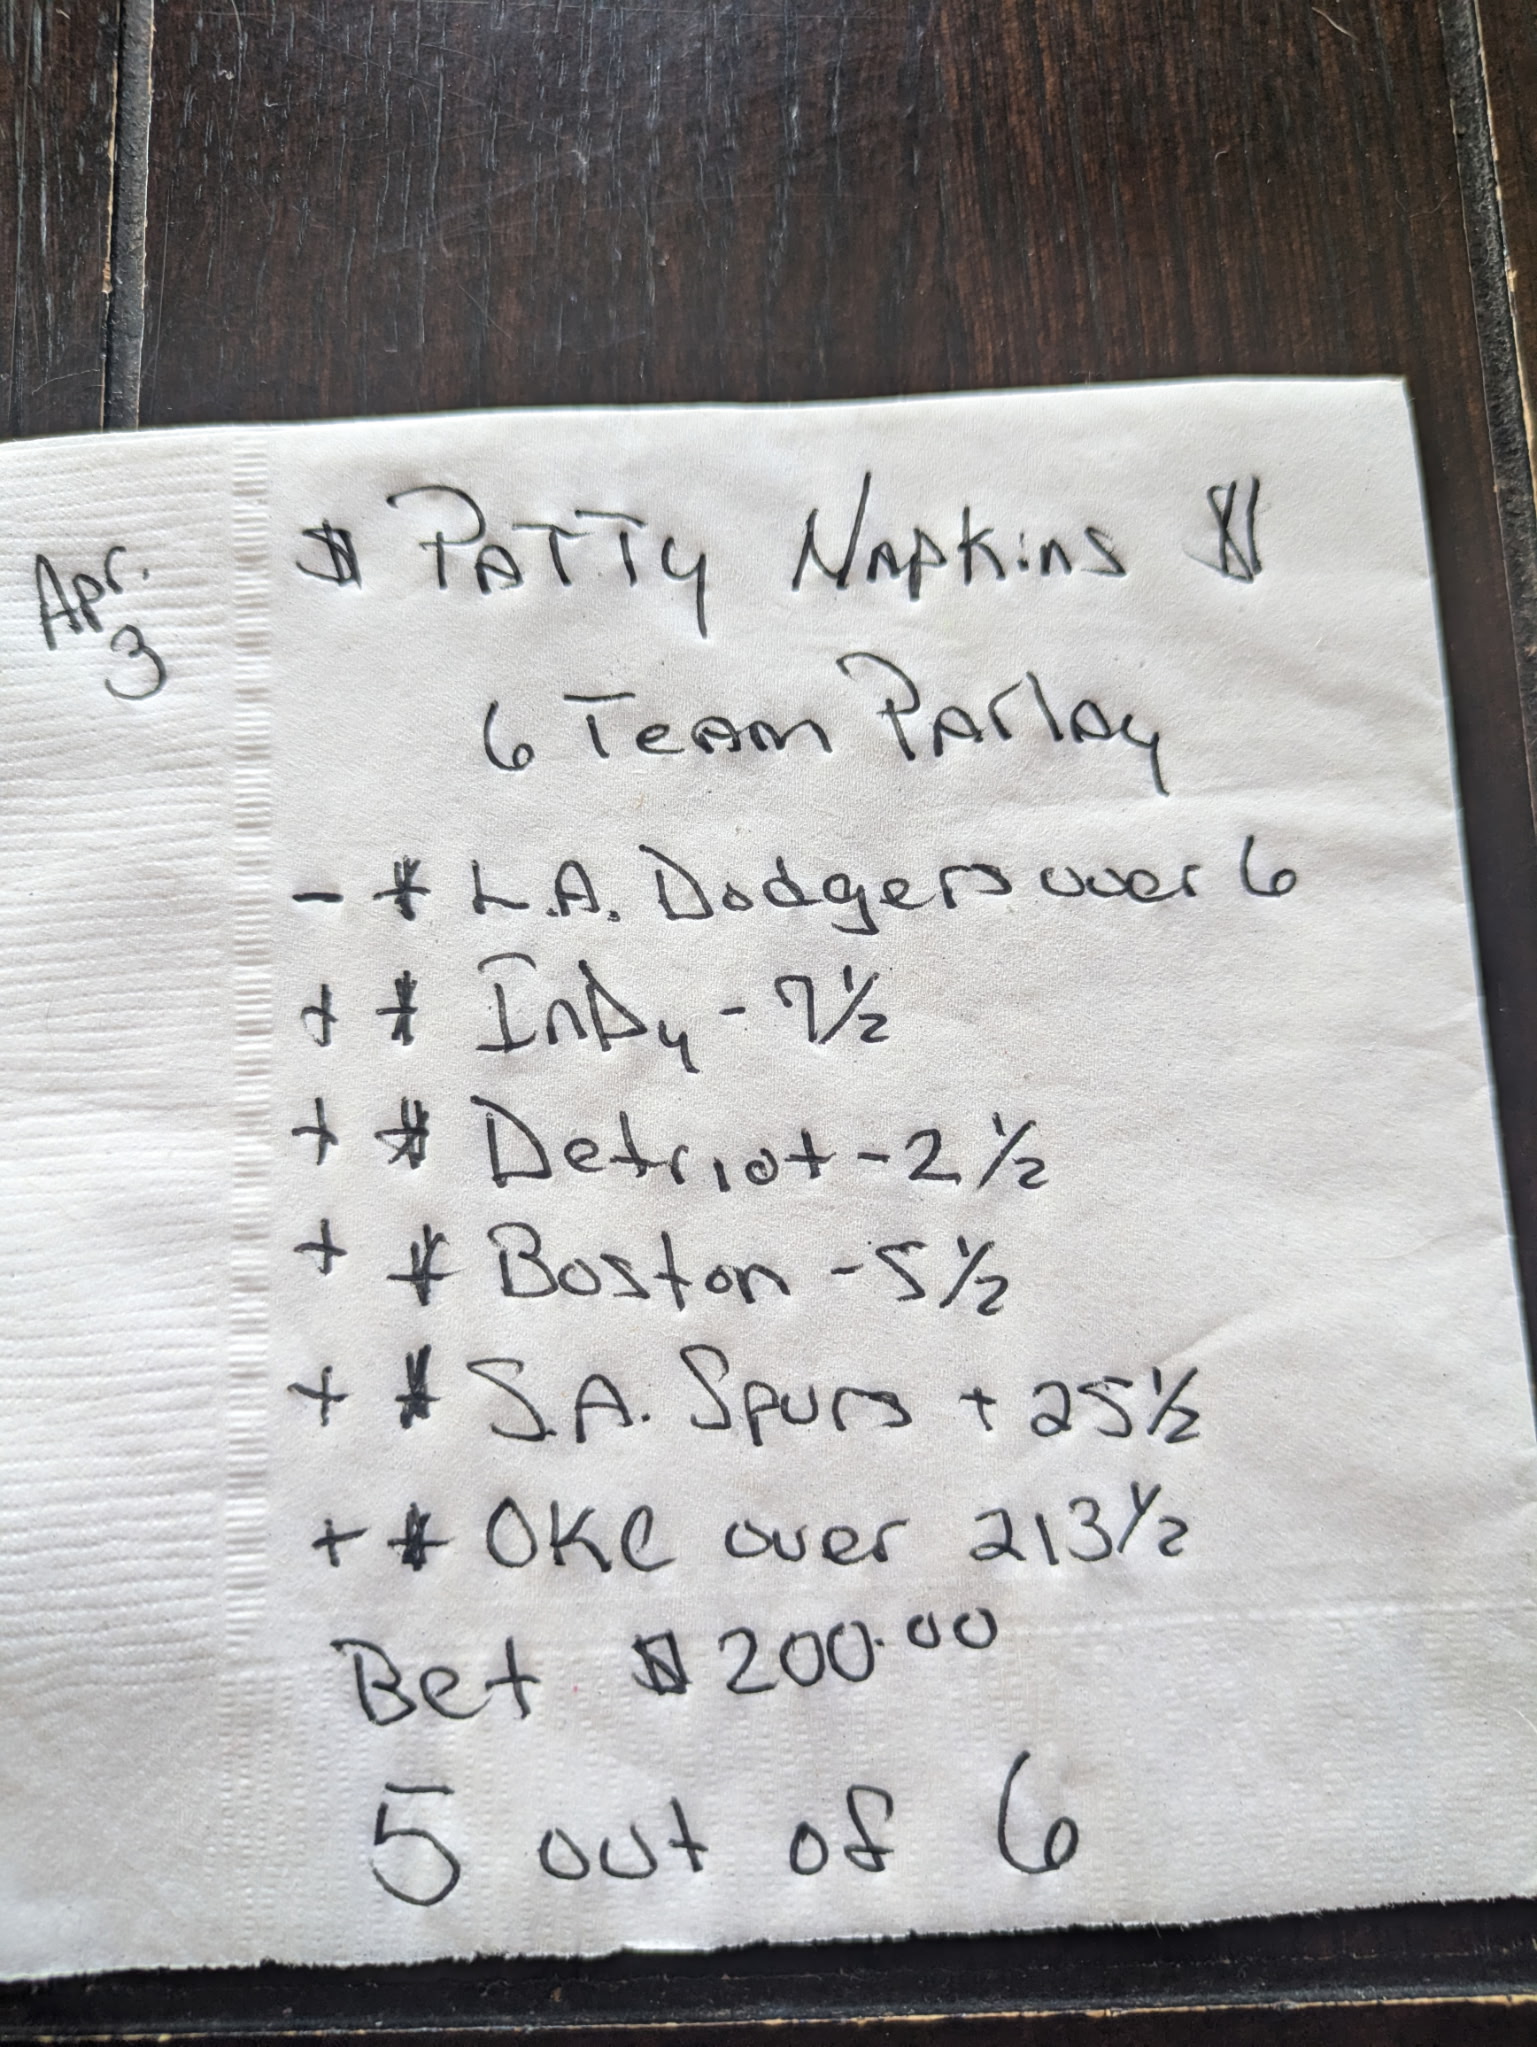 Apr.
3
$ Patty Napkins $
6 Team Parlay
- * L.A. Dodgers over 6
+ * Indy - 7½
+ * Detriot - 2½
+ * Boston - 5½
+ * S.A. Spurs + 25½
+ * OKC over 213½
Bet $200.00
5 out of 6